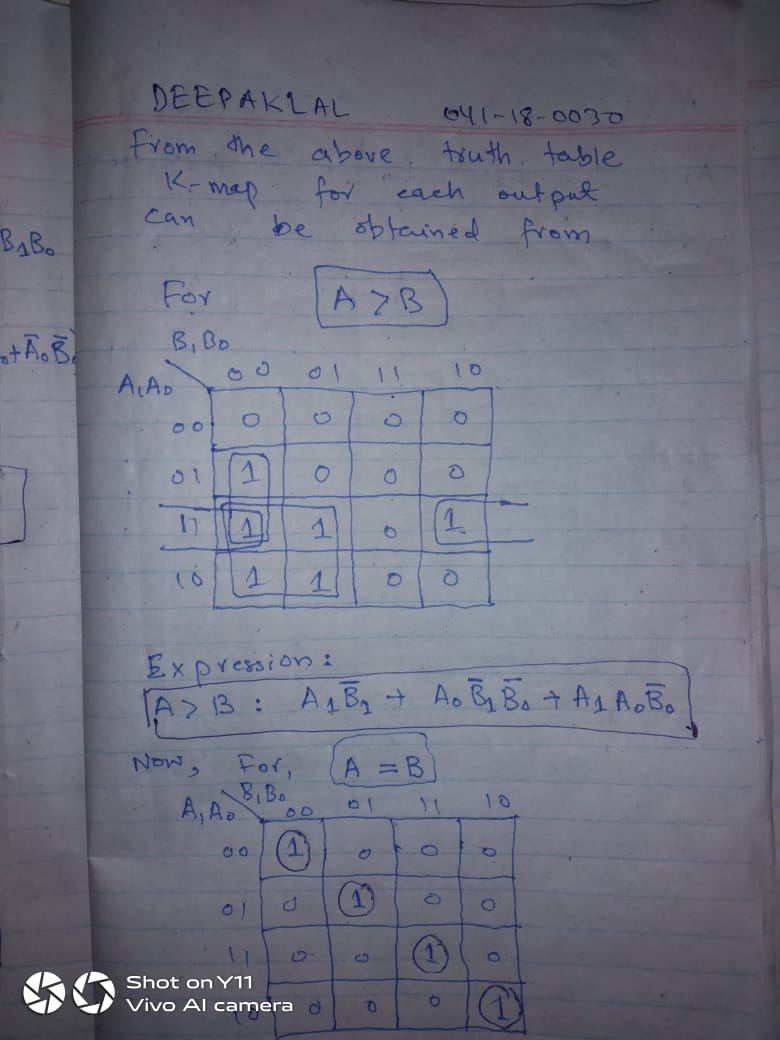 DEEPAKLAL 041-18-0030
From the above truth table
K-map for each output
can be obtained from
B₁B₀
For A > B
₀+Ā₀B̄₀
B₁B₀
A₁A₀ 00 01 11 10
00 0 0 0 0
01 1 0 0 0
11 1 1 0 1
10 1 1 0 0
Expression:
A > B : A₁B̄₁ + A₀B̄₁B̄₀ + A₁A₀B̄₀
Now, For, A = B
B₁B₀
A₁A₀ 00 01 11 10
00 1 0 0 0
01 0 1 0 0
11 0 0 1 0
10 0 0 0 1
Shot on Y11
Vivo AI camera